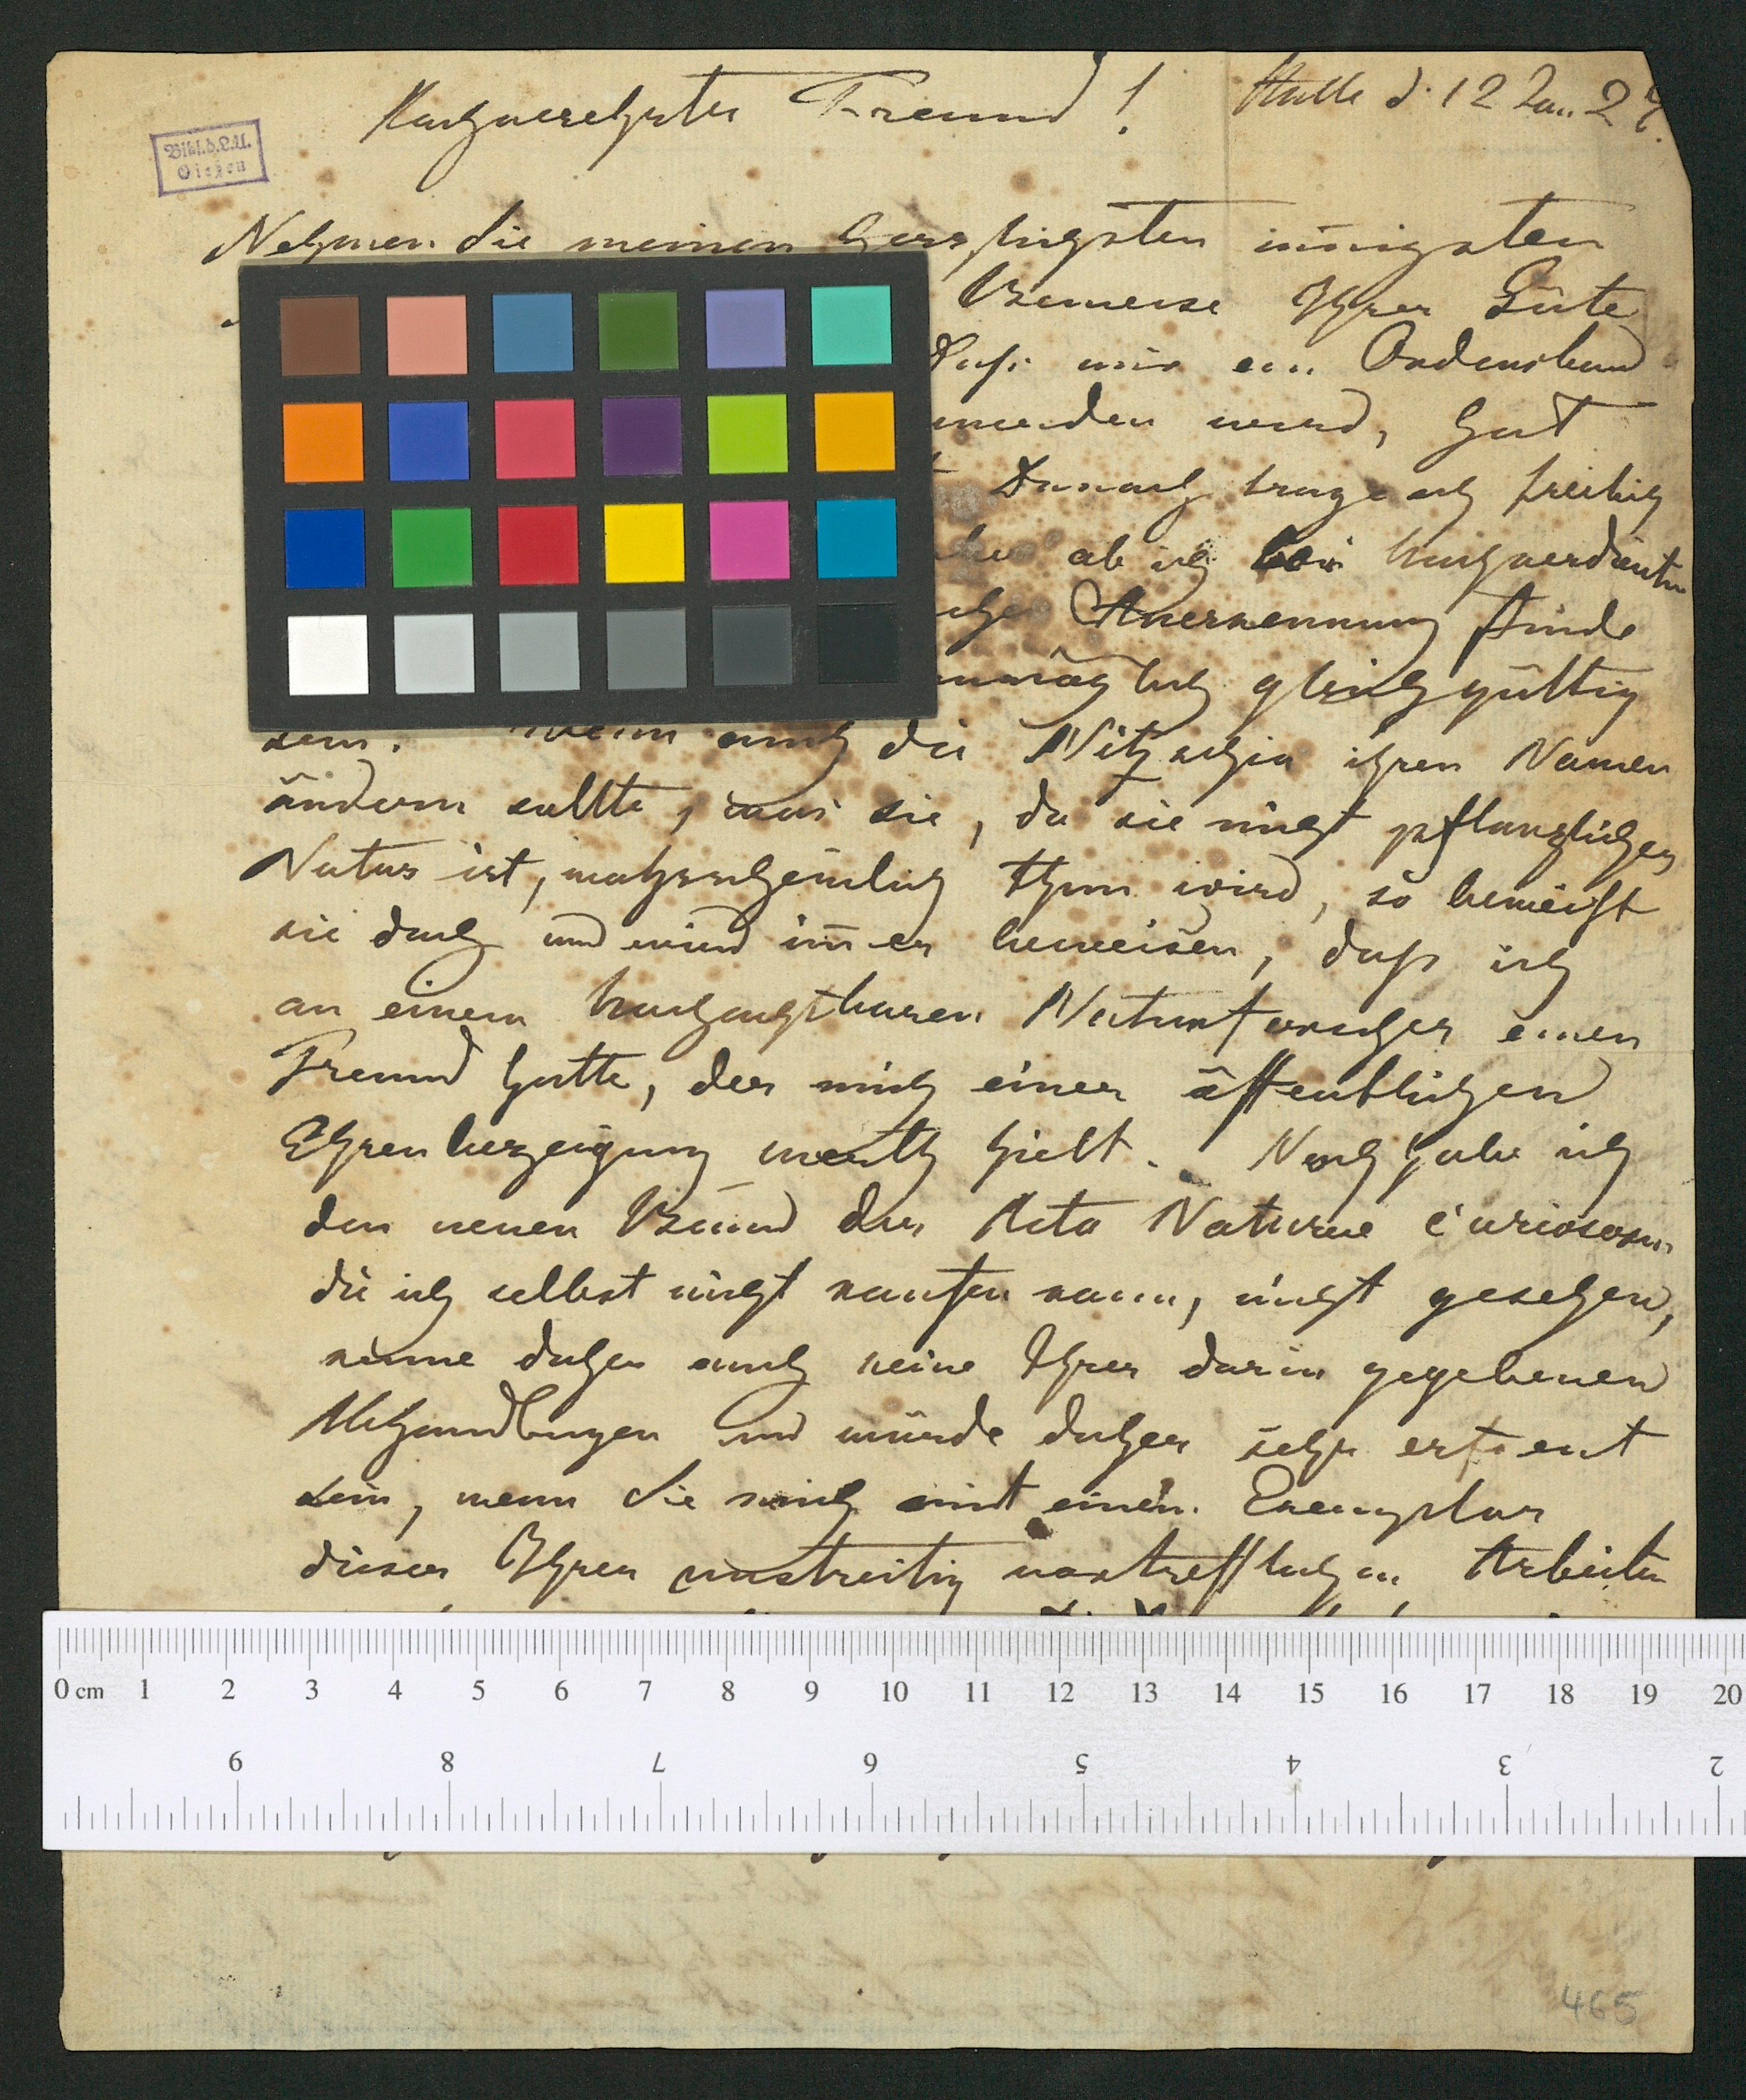 Hochverehrter Freund! Halle d. 12 Jan. 24.
Bibl. d. L. U.
Gießen
Nehmen Sie meinen herzlichsten iñigsten
Beweise Ihrer Güte
Daß mir ein Ordensband
werden wird, hat
Danach trage ich freilich
ab ich bei hochverdienten
Anerkennung finde
unmöglich gleichgültig
sein. Wenn auch die Nitzschia ihren Namen
ändern sollte, was sie, da sie nicht pflanzlicher
Natur ist, wahrscheinlich thun wird, so beweißt
sie doch und wird im̃er beweisen, daß ich
an einem hochachtbaren Naturforscher einen
Freund hatte, der mich einer öffentlichen
Ehrenbezeigung werth hielt. Noch habe ich
den neuen Band der Acta Naturae Curiosorum
die ich selbst nicht kaufen kann, nicht gesehen,
kenne daher auch keine Ihrer darin gegebenen
Abhandlungen und würde daher sehr erfreut
sein, wenn Sie mich mit einem Exemplar
dieser Ihrer unstreitig vortrefflichen Arbeiten
0 cm 1 2 3 4 5 6 7 8 9 10 11 12 13 14 15 16 17 18 19 20
9 8 7 6 5 4 3 2
465